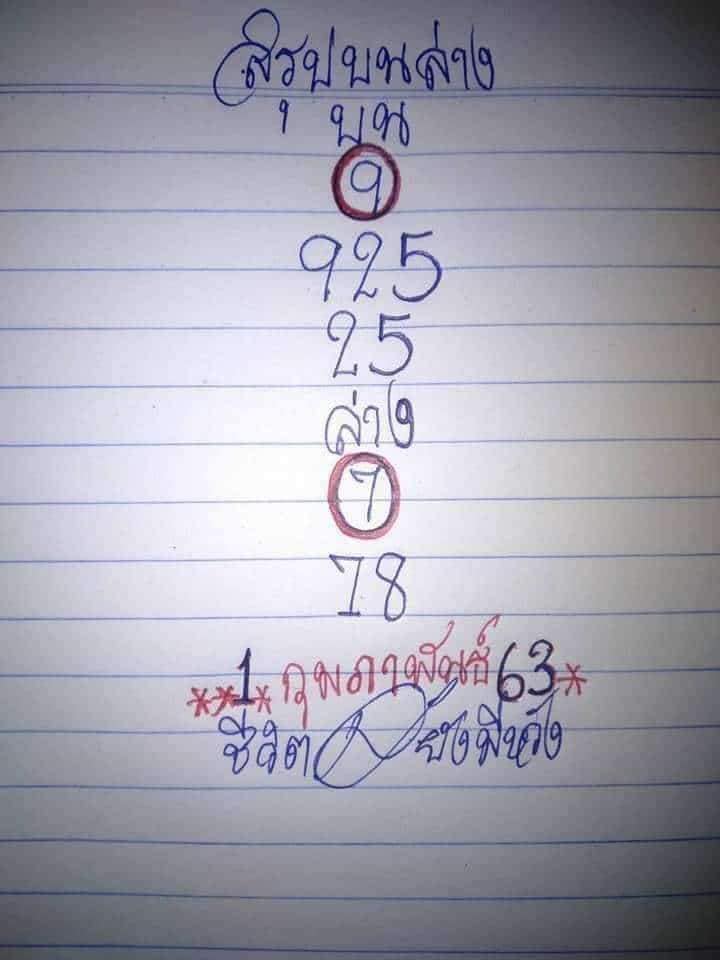 สรุปบนล่าง
บน
9
925
25
ล่าง
7
78
***1 กุมภาพันธ์ 63*
ชีวิต ยังมีหวัง